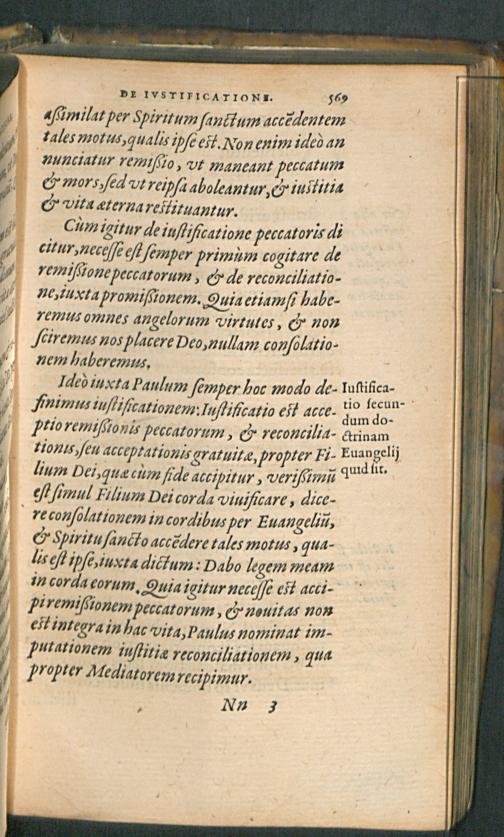 DE IVSTIFICATIONE. 569
aſsimilat per Spiritum ſanctum accēdentem
tales motus, qualis ipſe eſt. Non enim ideò an
nunciatur remiſsio, vt maneant peccatum
& mors, ſed vt reipſa aboleantur, & iuſtitia
& vita æterna reſtituantur.
Cùm igitur de iuſtificatione peccatoris di
citur, neceſſe eſt ſemper primùm cogitare de
remiſsione peccatorum, & de reconciliatio-
ne, iuxta promiſsionem. Quia etiamſi habe-
remus omnes angelorum virtutes, & non
ſciremus nos placere Deo, nullam conſolatio-
nem haberemus.
Ideò iuxta Paulum ſemper hoc modo de-
finimus iuſtificationem: Iuſtificatio eſt acce-
ptio remiſsionis peccatorum, & reconcilia-
tionis, ſeu acceptationis gratuitæ, propter Fi-
lium Dei, quæ cùm fide accipitur, veriſimũ
eſt ſimul Filium Dei corda viuificare, dice-
re conſolationem in cordibus per Euangeliũ,
& Spiritu ſancto accēdere tales motus, qua-
lis eſt ipſe, iuxta dictum: Dabo legem meam
in corda eorum. Quia igitur neceſſe eſt acci-
pi remiſsionem peccatorum, & nouitas non
eſt integra in hac vita, Paulus nominat im-
putationem iuſtitiæ reconciliationem, qua
propter Mediatorem recipimur.
Iuſtifica-
tio ſecun-
dum do-
ctrinam
Euangelij
quid ſit.
Nn 3